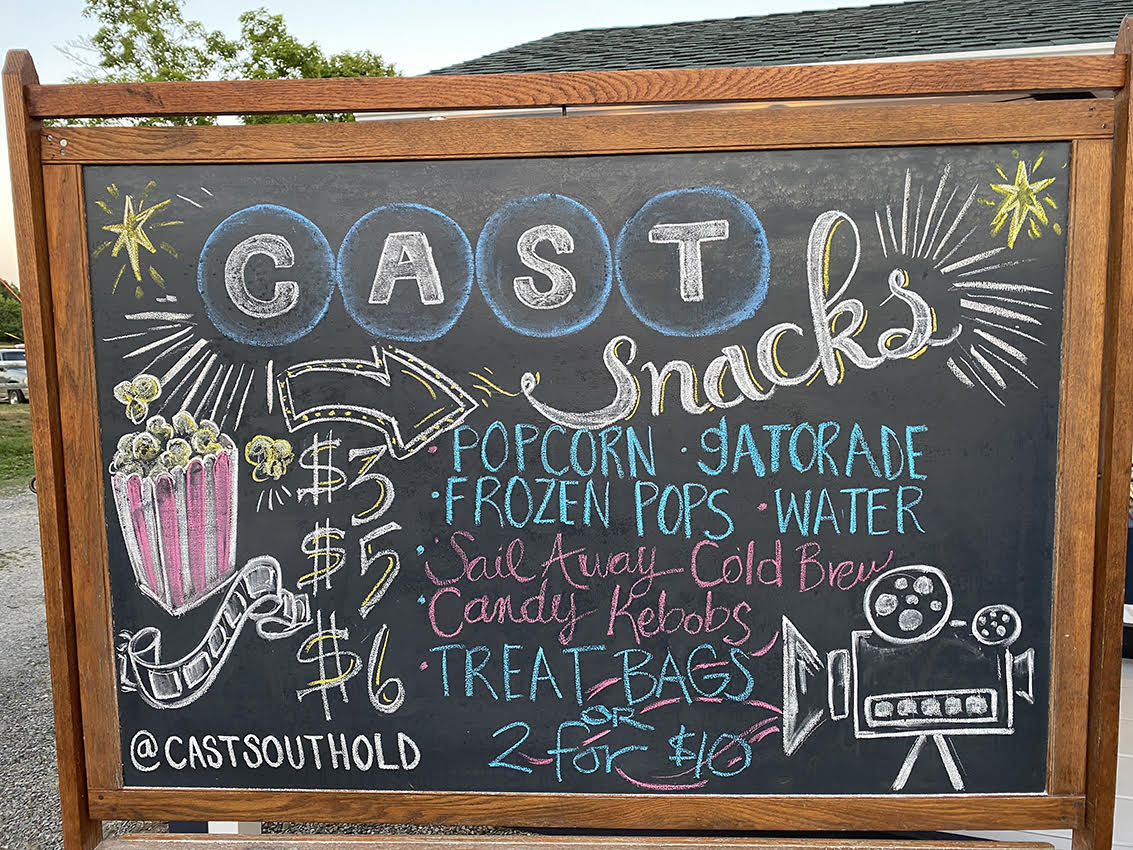 CAST
Snacks
$3 · POPCORN · gATORADE
· FROZEN POPS · WATER
$5 · Sail Away Cold Brew
· Candy Kebobs
$6 · TREAT BAGS
OR
2 for $10
@CASTSOUTHOLD